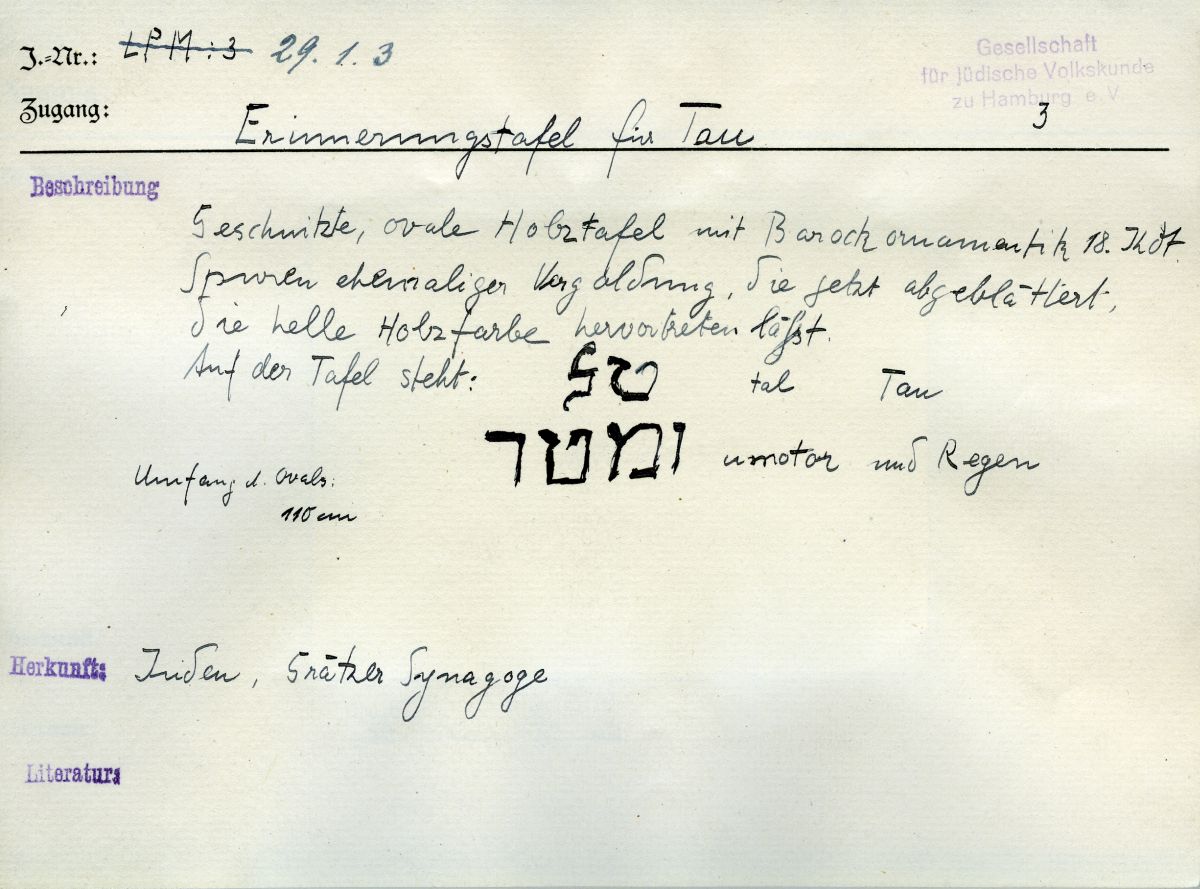 J.-Nr.: LPM:3 29.1.3
Gesellschaft
für jüdische Volkskunde
zu Hamburg e.V.
Zugang: Erinnerungstafel für Tau 3
Beschreibung
Geschnitzte, ovale Holztafel mit Barockornamentik 18. Jhdt.
Spuren ehemaliger Vergoldung, die jetzt abgeblättert,
die helle Holzfarbe hervortreten läßt.
Auf der Tafel steht: טל tal Tau
ומטר umotor und Regen
Umfang d. Ovals:
110 cm
Herkunft: Juden, Grätzer Synagoge
Literatur: